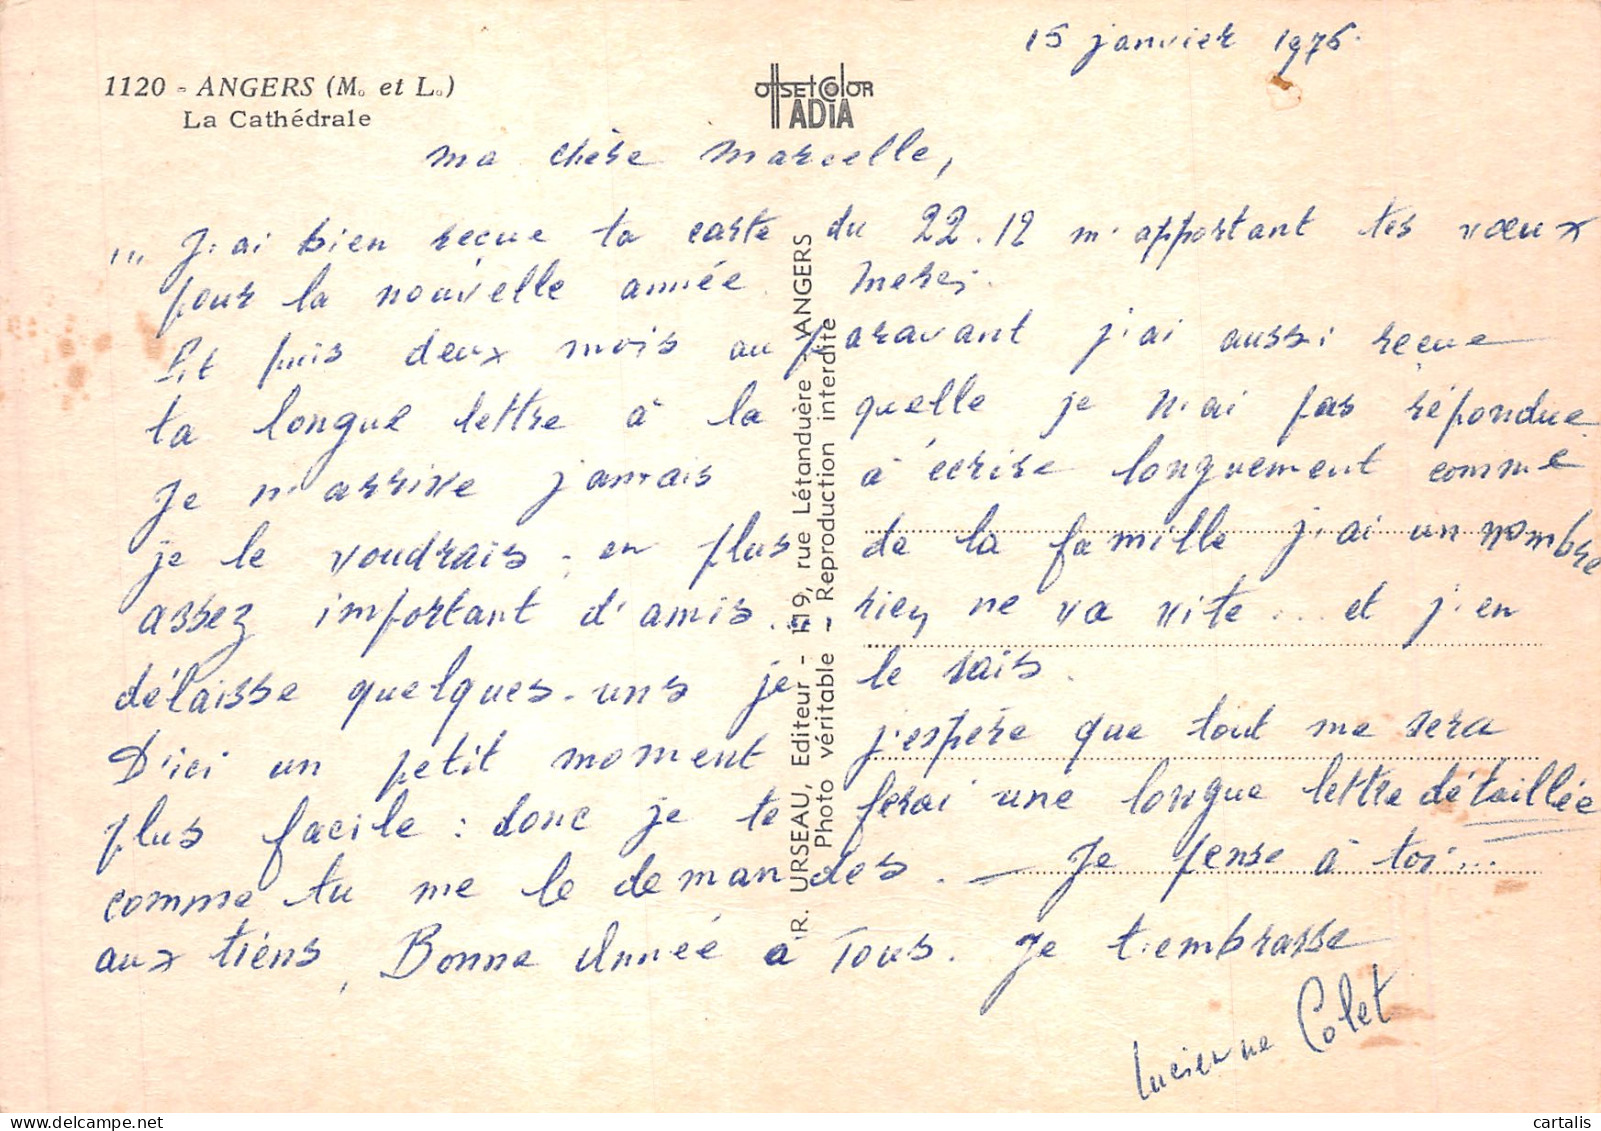 15 janvier 1976.
1120 - ANGERS (M. et L.)
La Cathédrale
OffsetColor
ADIA
ma chère Marcelle,
... J'ai bien reçue ta carte du 22.12 m'apportant tes vœux
pour la nouvelle année. Merci.
Et puis deux mois auparavant j'ai aussi reçue
ta longue lettre à la quelle je n'ai pas répondue.
Je n'arrive jamais à écrire longuement comme
je le voudrais. en plus de la famille j'ai un nombre
assez important d'amis. rien ne va vite... et j'en
délaisse quelques-uns je le sais.
D'ici un petit moment j'espère que tout me sera
plus facile : donc je te ferai une longue lettre détaillée
comme tu me le demandes. — Je pense à toi...
aux tiens, Bonne Année à Tous. Je t'embrasse
Lucienne Colet
R. URSEAU, Editeur - 119, rue Létanduère - ANGERS
Photo véritable - Reproduction interdite
cartalis